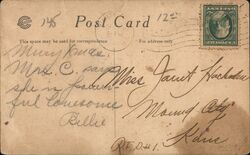 148
12
Post Card
This space may be used for correspondence
For address only
Merry Xmas.
Mrs. C. says
she is
ful lonesome
Billie
Miss Janet
Mound City
Kan
R.F.D.#1.